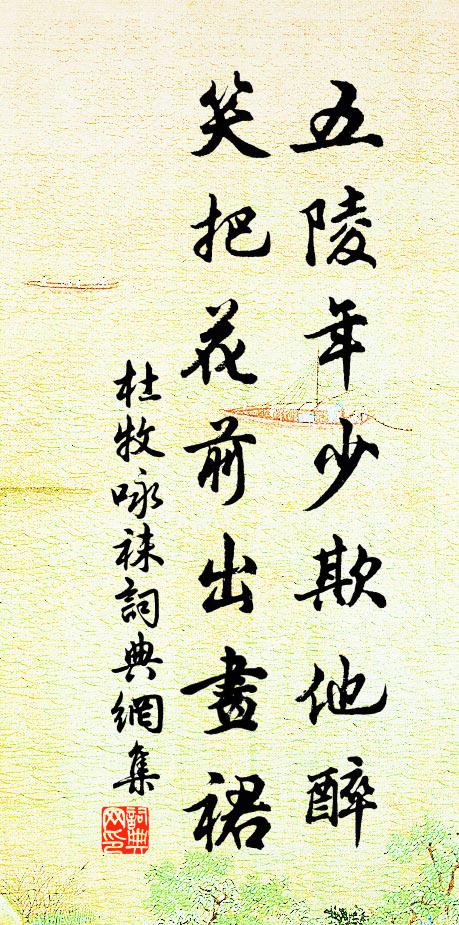 五陵年少欺他醉
笑把花前出畫裙
杜牧咏袜詞典網集
詞典
网印